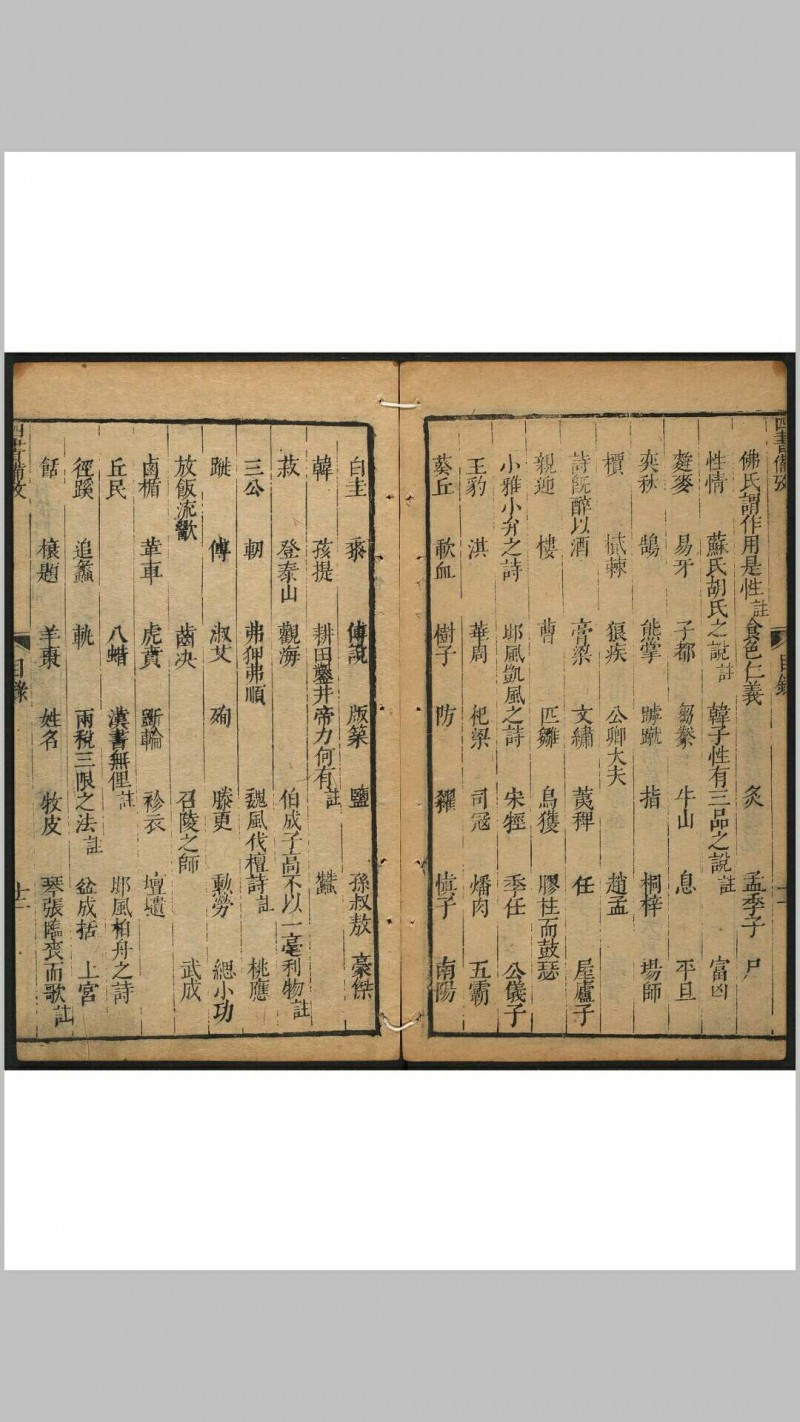 四書備攷
佛氏謂作用是性註 食色仁義 炙 孟季子 尸
性情 蘇氏胡氏之說註 韓子性有三品之說註 富凶
麰麥 易牙 子都 芻豢 牛山 息 平旦
奕秋 鵠 熊掌 蹴 指 桐梓 場師
檟 樲棘 狼疾 公卿大夫 趙孟
詩旣醉以酒 膏粱 文繡 荑稗 任 屋廬子
親迎 樓 曹 匹雛 烏獲 膠柱而鼓瑟
小雅小弁之詩 邶風凱風之詩 宋牼 季任 公儀子
王豹 淇 華周 杞梁 司冦 燔肉 五霸
葵丘 歃血 樹子 防 糴 愼子 南陽
目錄
白圭 黍 傅說 版築 鹽 孫叔敖 豪傑
韓 孩提 耕田鑿井帝力何有註 蠶
菽 登泰山 觀海 伯成子高不以一毫利物註
三公 軔 弗狎弗順 魏風伐檀詩註 桃應
蹝 傅 淑艾 殉 滕更 勳勞 緦小功
放飯流歠 齒决 召陵之師 武成
鹵楯 革車 虎賁 斲輪 袗衣 壇壝
丘民 八蜡 漢書無俚註 邶風柏舟之詩
徑蹊 追蠡 軌 兩稅三限之法註 盆成括 上宮
餂 榱題 羊棗 姓名 牧皮 琴張臨喪而歌註
四書備攷
目錄
十二